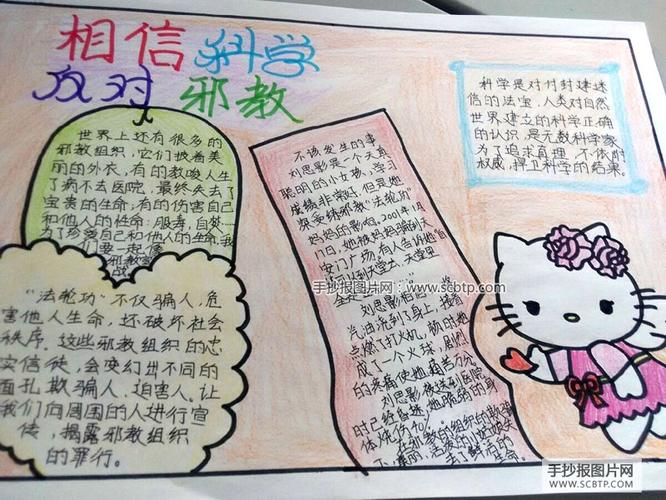 相信科学
反对邪教
世界上还有很多的
邪教组织，它们披着美
丽的外衣，有的教唆人生
了病不去医院，最终失去了
宝贵的生命；有的伤害自己
和他人的性命：服毒，自焚……
为了珍爱自己和他人的生命，我
们要一起
邪教
战
"法轮功"不仅骗人，危
害他人生命，还破坏社会
秩序。这些邪教组织的忠
实信徒，会变幻出不同的
面孔欺骗人、迫害人。让
我们向周围的人进行宣
传，揭露邪教组织
的罪行。
不该发生的事
刘思影是一个天真
聪明的小女孩，学习
成绩非常好，但是她
深受练邪教"法轮功"
妈妈的影响。2001年1月
她被妈妈骗到天
安门广场，有人告诉她自
手抄报图片网：www.scbtp.com
汽油浇到了身上，接着
点燃了打火机，
成了一个火球，剧烈
的疼痛使她
刘思影被送到医院
时已经昏迷，她
体烧伤40%
科学是对付封建迷
信的法宝，人类对自然
世界建立的科学正确
的认识，是无数科学家
为了追求真理，不依附
权威，捍卫科学的结果。
手抄报图片网
WWW.SCBTP.COM